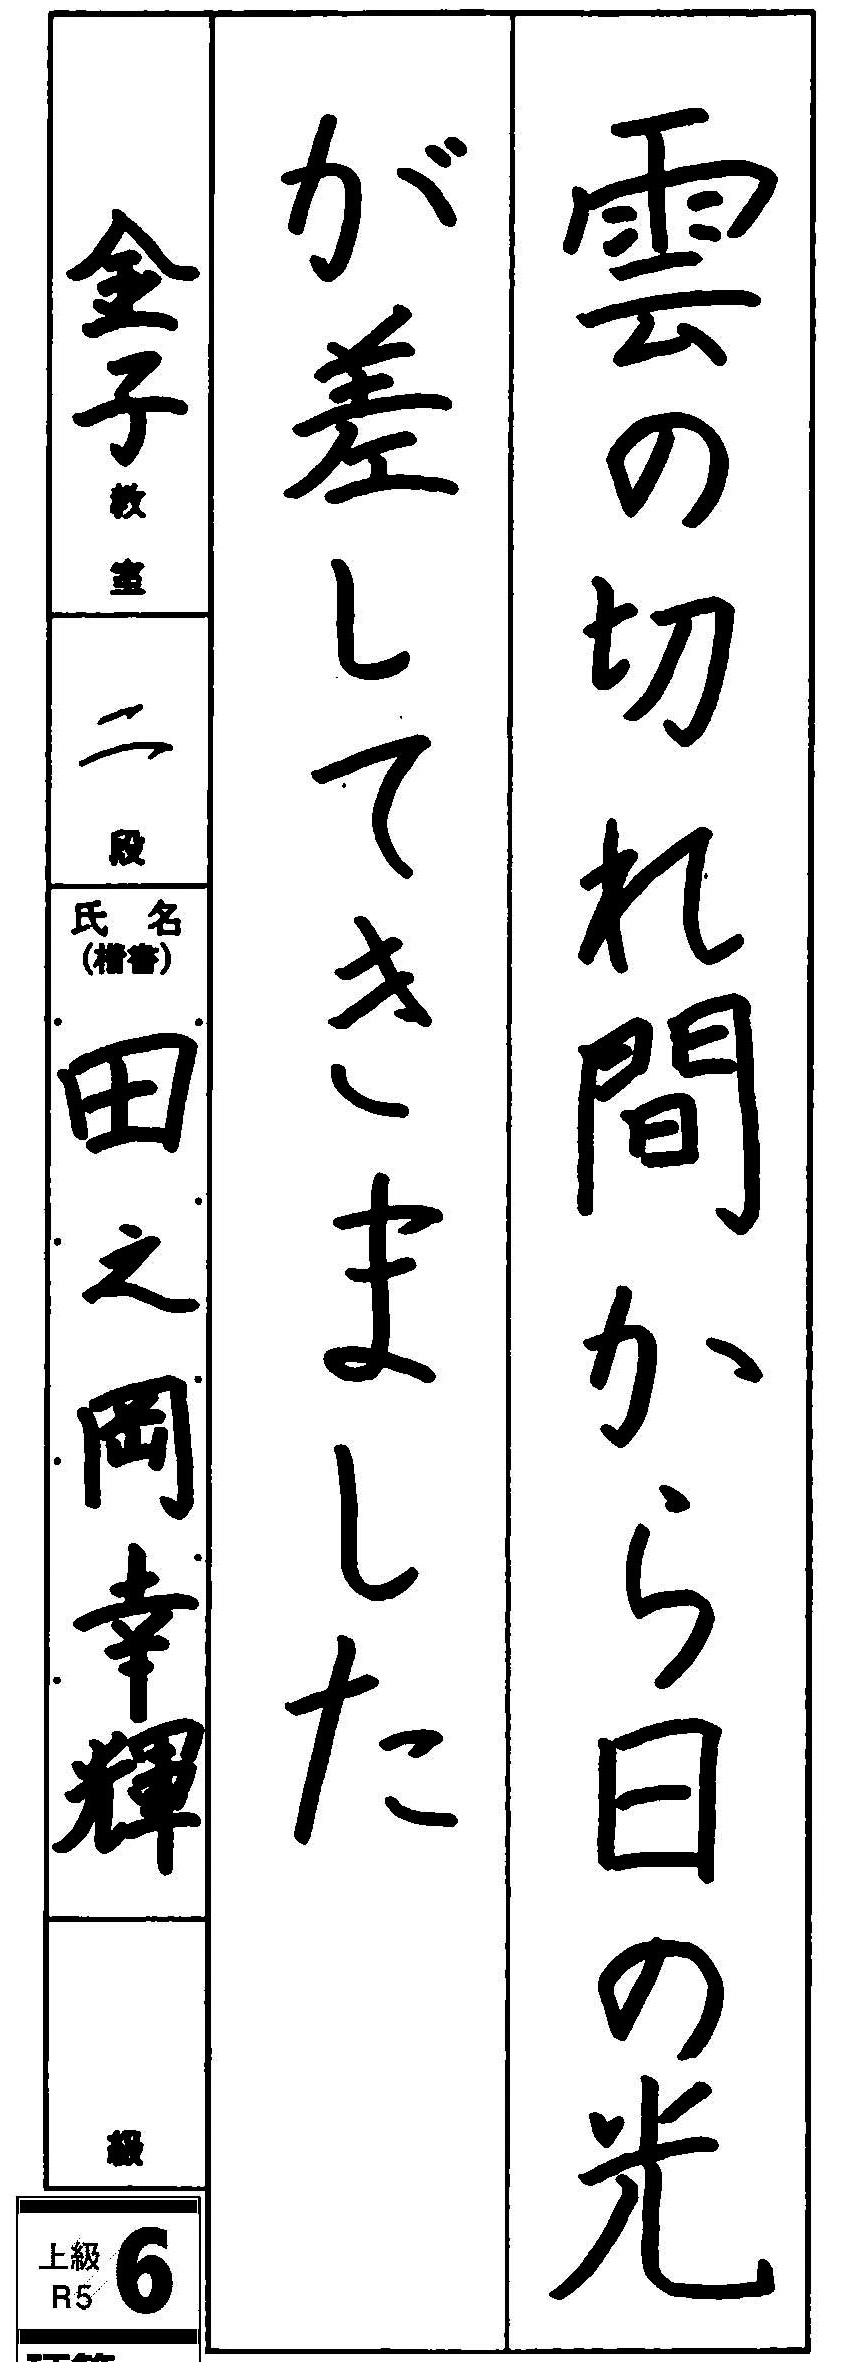 雲の切れ間から日の光
が差してきました
金子教室
二段
氏名
(楷書)
田之岡幸輝
級
上級
R5
6